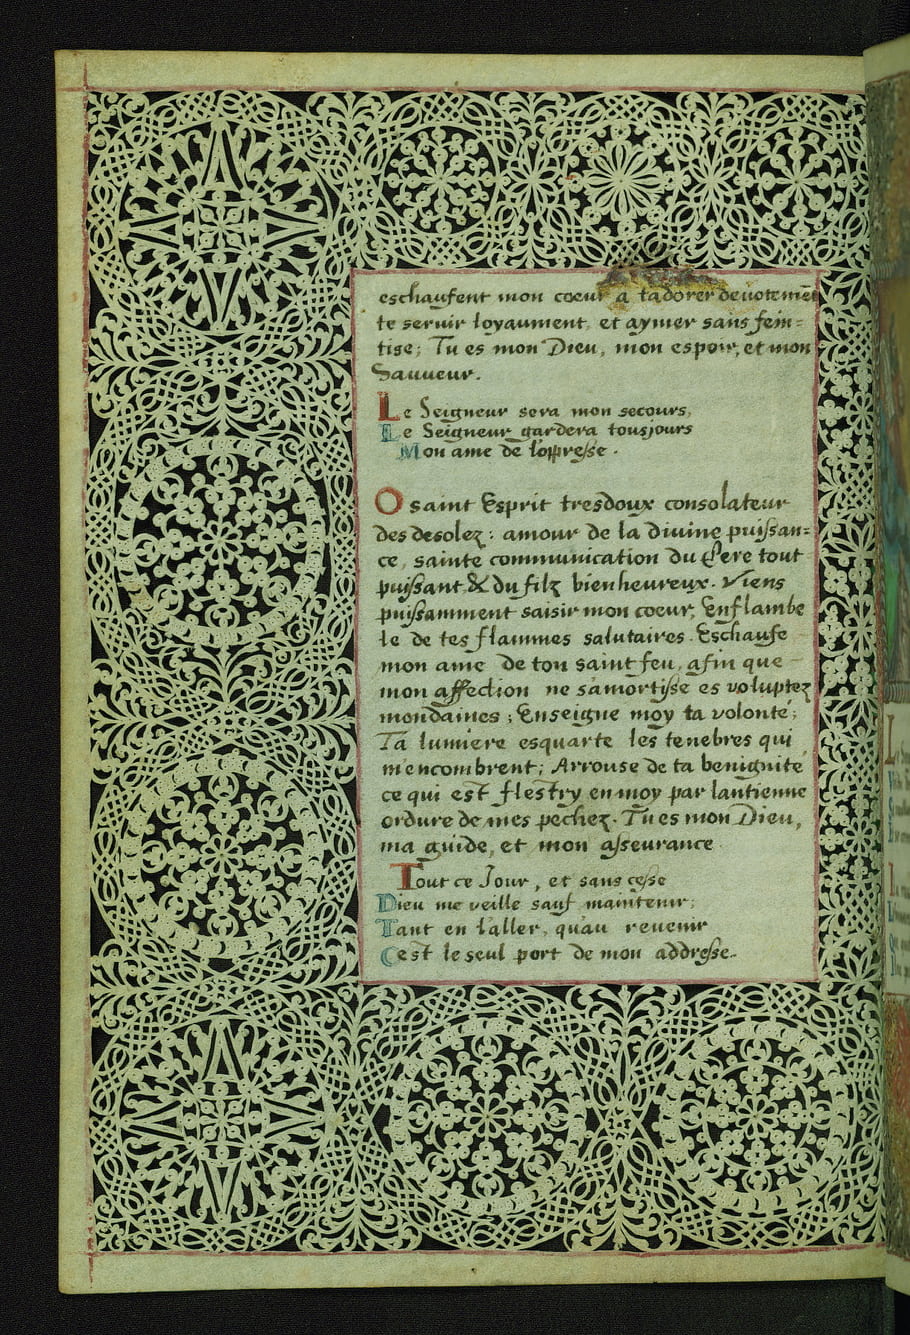 eschaufent mon coeur a tadorer devotemēt
te seruir loyaument, et aymer sans fein=
tise; Tu es mon Dieu, mon espoir, et mon
Sauveur.
Le Seigneur sera mon secours,
Le Seigneur gardera tousjours
Mon ame de l'oppresse.
O saint Esprit tresdoux consolateur
des desolez: amour de la divine puissan=
ce, sainte communication du Pere tout
puissant & du filz bienheureux. Viens
puissamment saisir mon coeur, Enflambe
le de tes flammes salutaires. Eschaufe
mon ame de ton saint feu, afin que
mon affection ne s'amortisse es voluptez
mondaines; Enseigne moy ta volonté;
Ta lumiere esquarte les tenebres qui
m'encombrent; Arrouse de ta benignité
ce qui est flestry en moy par lantienne
ordure de mes pechez. Tu es mon Dieu,
ma guide, et mon asseurance
Tout ce Jour, et sans cesse
Dieu me veille sauf maintenir;
Tant en l'aller, qu'au revenir
C'est le seul port de mon addresse.